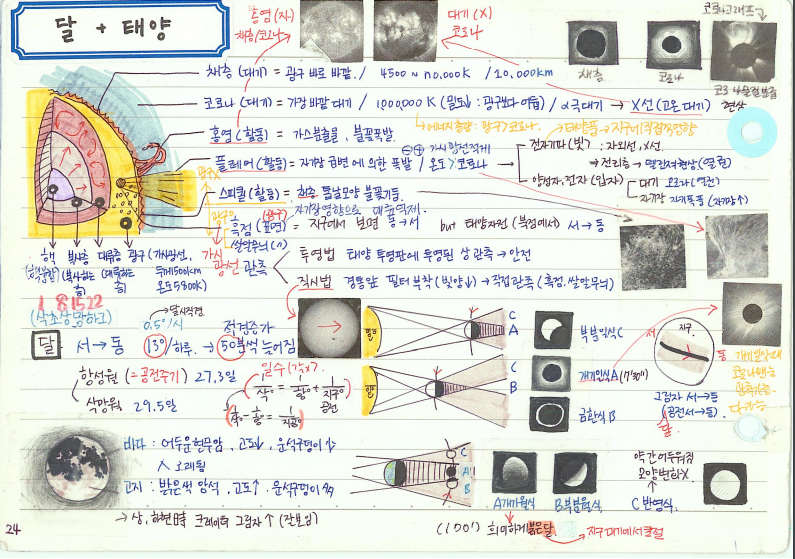 달 + 태양
홍염 (자)
채층/코로나
대기 (X)
코로나
코로나그래프
채층
코로나
채층 (대기) = 광구 바로 바깥 / 4500 ~ n0.000K / 10.000km
코로나 (대기) = 가장 바깥 대기 / 1,000,000K (밀도↓: 광구보다 어둡) / 극대기 → X선 (고온 대기)
현상
에너지총량: 광구 > 코로나.
태양풍 → 지구에 직접적 영향
홍염 (활동) = 가스분출물, 불꽃폭발.
플레어 (활동) = 자기장 급변에 의한 폭발 / 온도 > 코로나
전자기파 (빛): 자외선, X선.
→ 전리층 → 델린저현상 (열권)
양성자, 전자 (입자)
대기 오로라 (열권)
자기장 자기폭풍 (자기장↑)
스피큘 (활동) = 채층 톱날모양 불꽃기둥.
자기장영향으로 대류억제.
흑점 (표면) → 지구에서 보면 동→서 but 태양자전 (북점에서) 서→동
쌀알무늬 (〃)
핵 복사층 대류층 광구 (가시광선,
두께 500km
온도 5800K)
(핵융합) (복사하는 층) (대류하는 층)
가시광선 관측
투영법 태양 투영판에 투영된 상 관측 → 안전
직시법 경통앞 필터부착 (빛양↓) → 직접관측 (흑점, 쌀알무늬)
1 8 15 22
(삭초상망하그)
달시직경
0.5°/시
적경증가
달 서→동 13°/하루. → 50분씩 늦어짐
항성월 (= 공전주기) 27.3일
삭망월 29.5일
1/삭° = 1/항° + 1/지구° 공전
1/삭° - 1/항° = 1/지공°
C
A
부분일식 C
C
B
개기일식 A (7'30")
금환식 B
지구.
서
동
그림자 서→동
(공전 서→동).
달
개기일식때
코로나
바다 : 어두운현무암, 고도↓, 운석구덩이↓
고지 : 밝은색 암석, 고도↑, 운석구덩이
→ 상, 하현때 크레이터 그림자↑ (잘보임)
C
A
B
A 개기월식
B 부분월식
약간 어두워짐
모양변화 X
C 반영식.
(100') 희미하게 붉은달
→ 지구대기에서 굴절
24